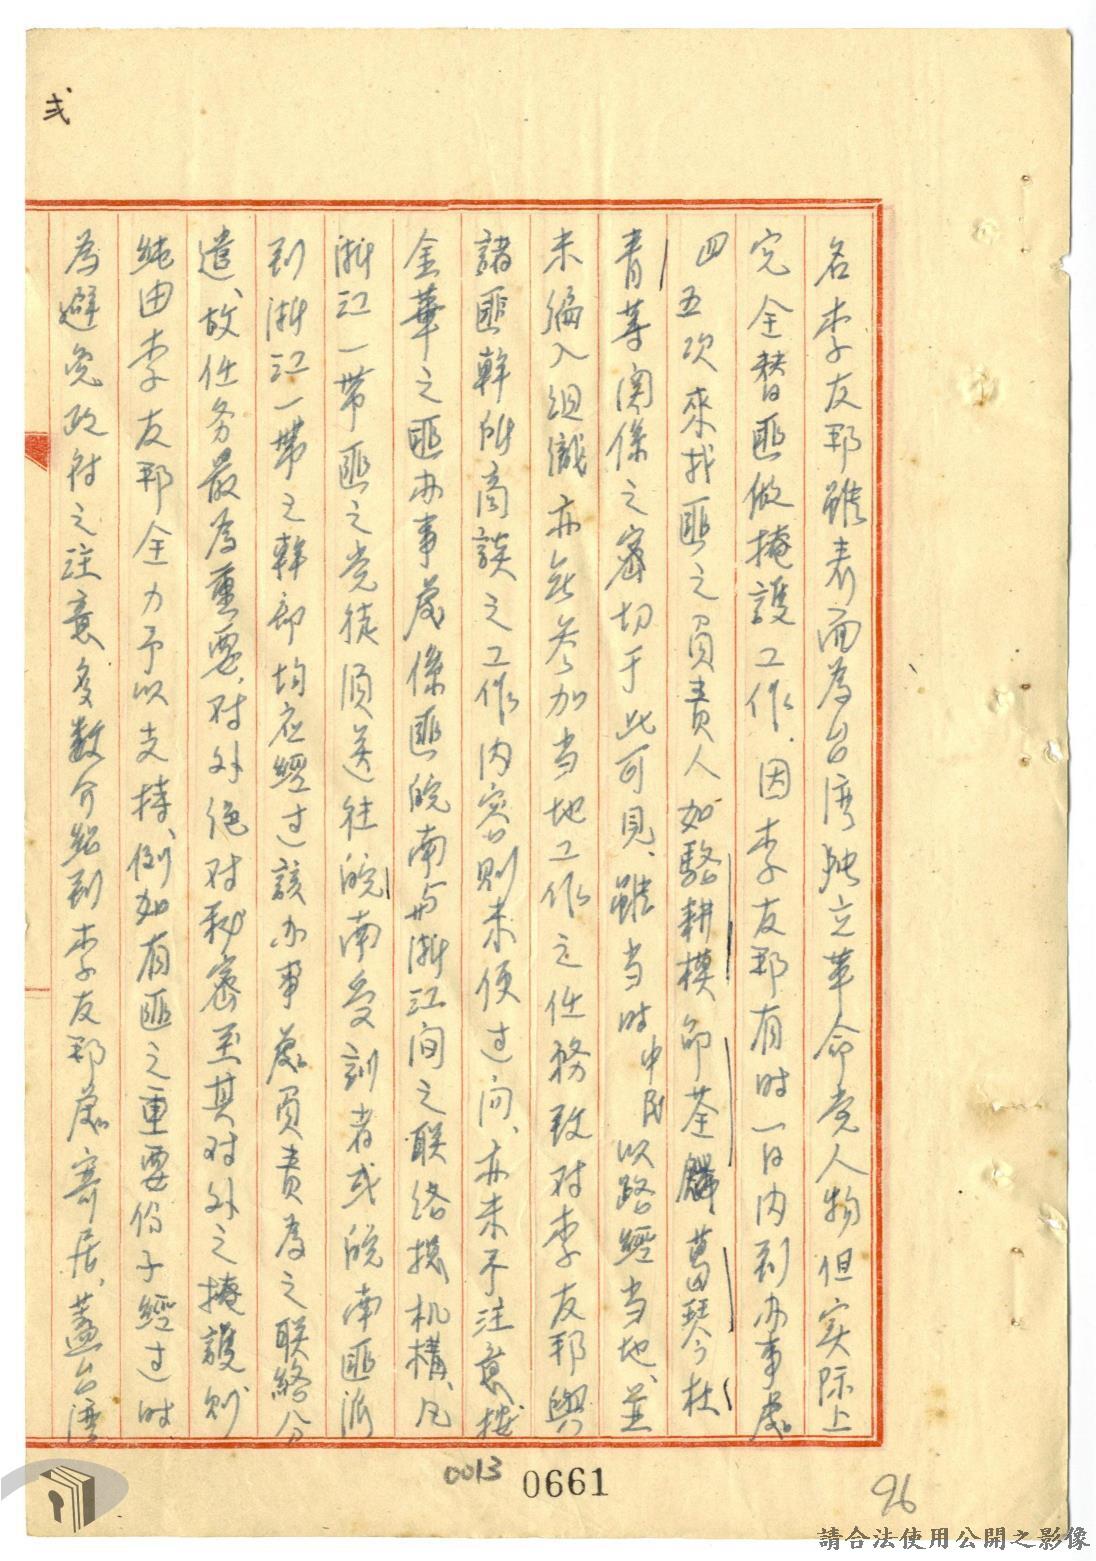 弍
名李友邦雖表面為台湾独立革命党人物但实际上
完全替匪做掩護工作、因李友邦有时一日内到办事處
四五次來找匪之負責人如駱耕模邵荃麟葛琴今杜
青等関係之密切于此可見、雖当时申民以路經当地、並
未编入组織亦無参加当地工作之任務致对李友邦與
諸匪幹所商談之工作内容則未便过问、亦未予注意、按
金華之匪办事處係匪皖南与浙江间之联络機机構、凡
浙江一帶匪之党徒須送往皖南受訓者或皖南匪派
到浙江一帶之幹部均应經过該办事處負責為之联絡分
遣、故任务最為重要、对外絕对秘密至其对外之掩護则
純由李友邦全力予以支持、例如有匪之重要份子經过时
為避免政府之注意多数介紹到李友邦處寄居、蓋台湾
0013
0661
96
請合法使用公開之影像